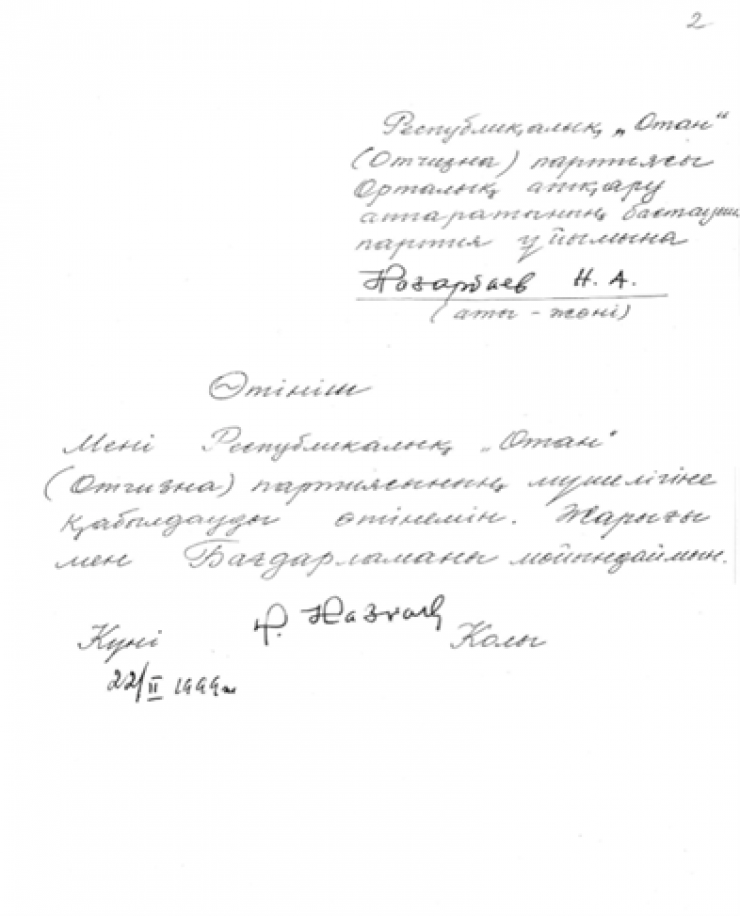 2
Республикалық „Отан“
(Отчизна) партиясы
Орталық атқару
аппаратының бастауыш
партия ұйымына
Назарбаев Н. А.
(аты - жөні)
Өтініш
Мені Республикалық „Отан“
(Отчизна) партиясының мүшелігіне
қабылдауды өтінемін. Жарғы
мен Бағдарламаны мойындаймын.
Күні Қолы
22/II 1999